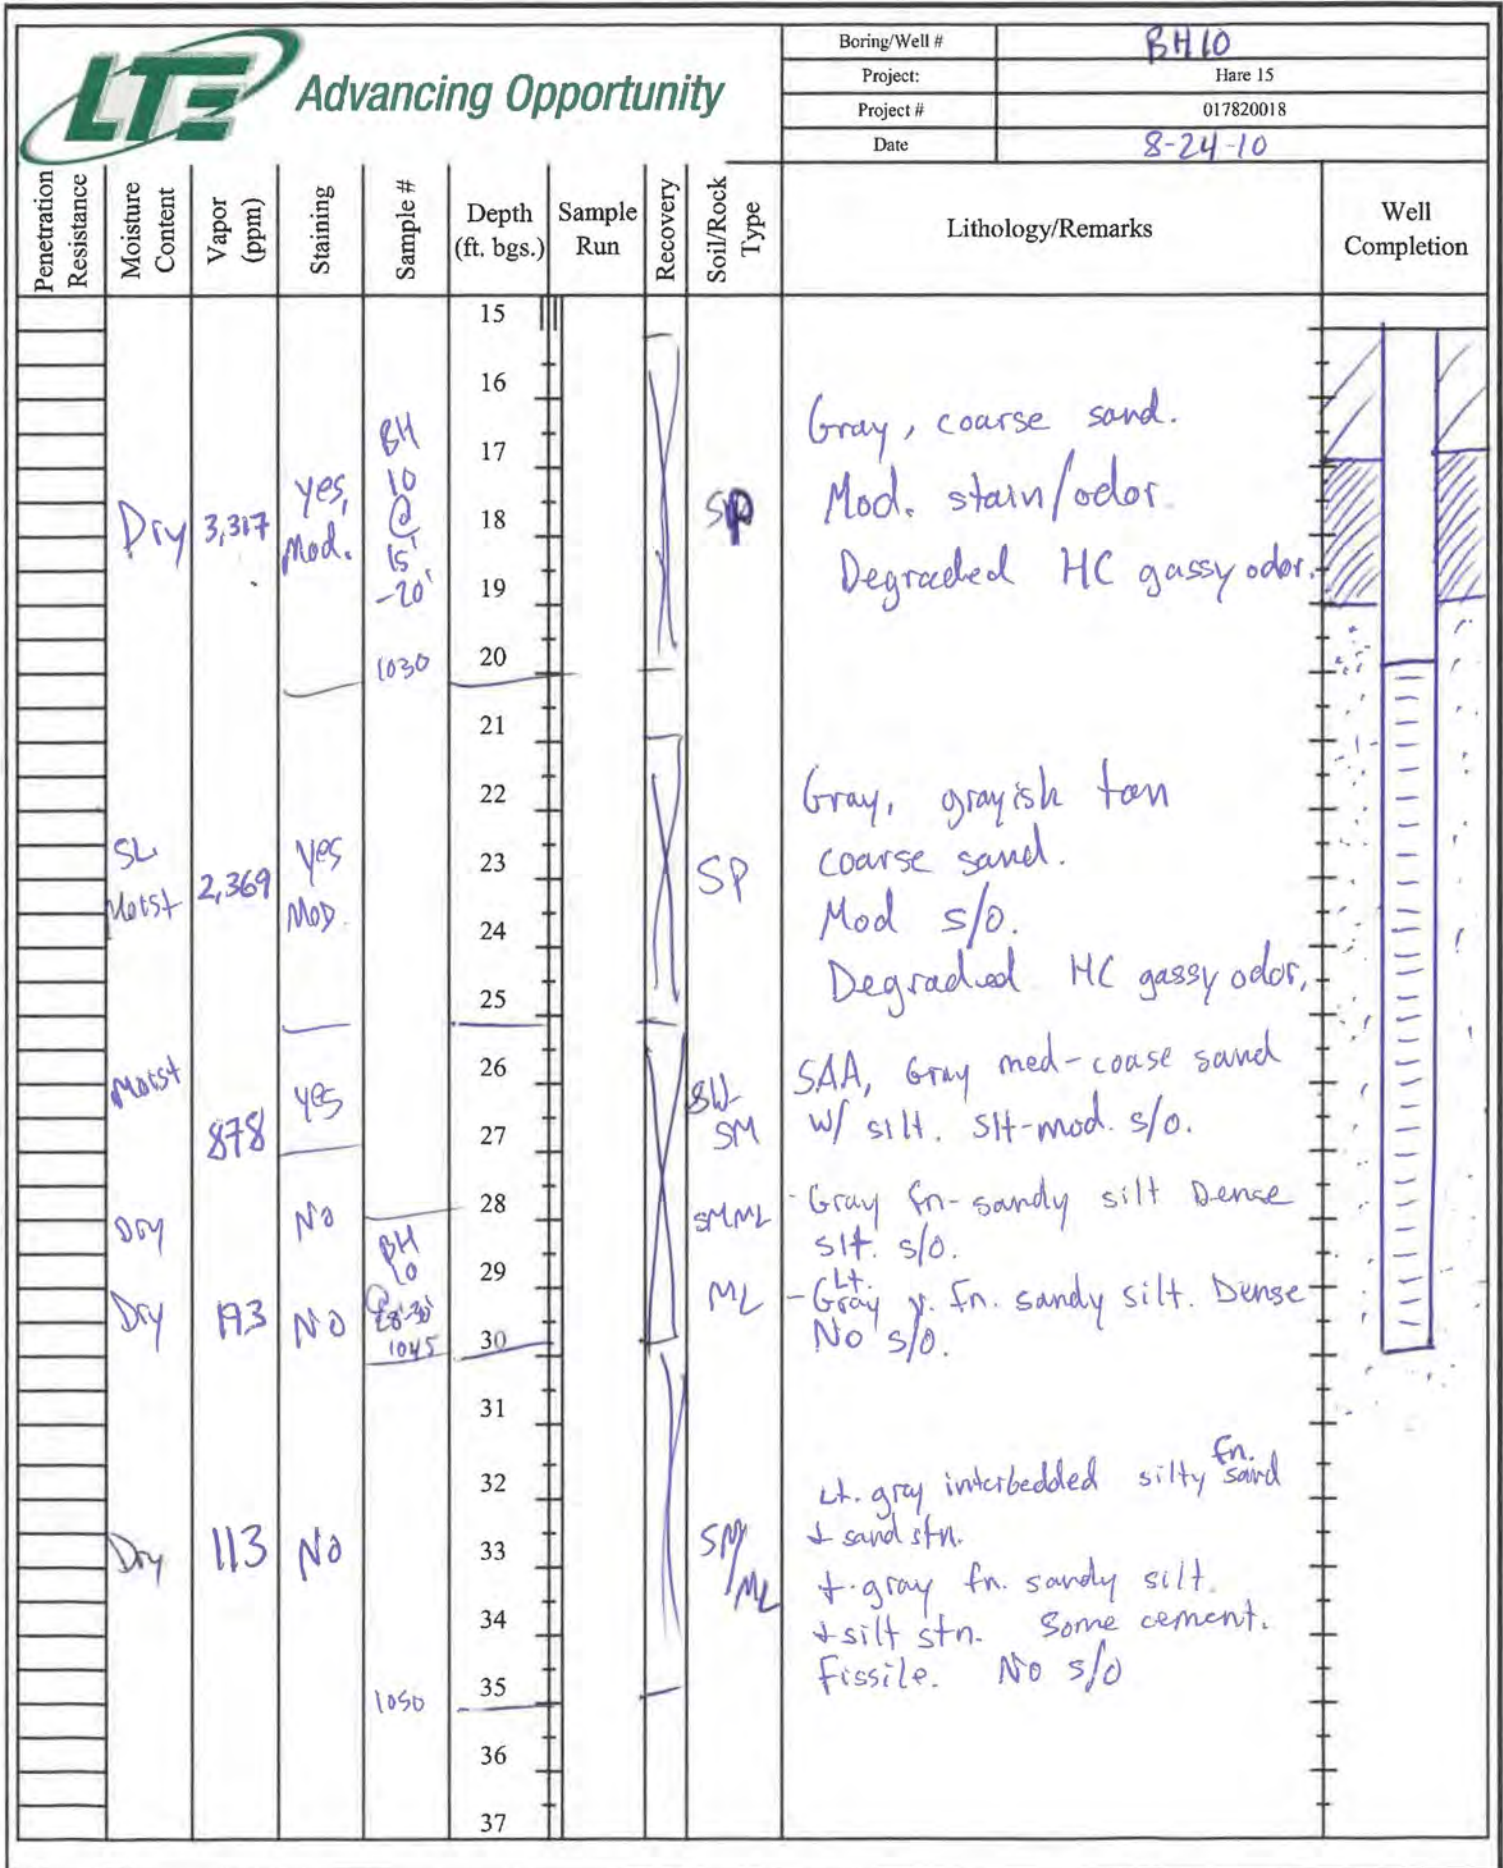 LTE Advancing Opportunity
Boring/Well # BH10
Project: Hare 15
Project # 017820018
Date 8-24-10
Penetration Resistance
Moisture Content
Vapor (ppm)
Staining
Sample #
Depth (ft. bgs.)
Sample Run
Recovery
Soil/Rock Type
Lithology/Remarks
Well Completion
15
16
17
18
19
20
21
22
23
24
25
26
27
28
29
30
31
32
33
34
35
36
37
Dry
3,317
yes, Mod.
BH
10
@
15'
-20'
1030
SP
Gray, coarse sand.
Mod. stain/odor.
Degraded HC gassy odor.
SL.
Moist
2,369
yes
MOD.
SP
Gray, grayish tan
coarse sand.
Mod s/o.
Degraded HC gassy odor.
Moist
878
yes
SW-
SM
SAA, Gray med-coase sand
w/ silt. slt-mod. s/o.
Dry
No
SMML
- Gray fn-sandy silt Dense
slt. s/o.
Dry
193
No
BH
10
@
28'-30'
1045
ML
- Lt. Gray v. fn. sandy silt. Dense
No s/o.
Dry
113
No
1050
SM/
ML
Lt. gray interbedded silty fn. sand
+ sand stn.
+ gray fn. sandy silt.
+ silt stn. Some cement.
Fissile. No s/o